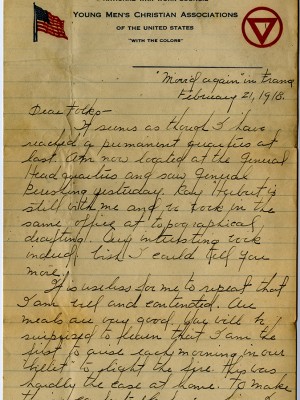 NATIONAL WAR WORK COUNCIL
YOUNG MEN'S CHRISTIAN ASSOCIATIONS
OF THE UNITED STATES
"WITH THE COLORS"
"Moved again" in France
February 21, 1918.
Dear folks-
It seems as though I have
reached a permanent quarters at
last. Am now located at the General
Head quarters and saw General
Pershing yesterday. Ray Herbert is
still with me and we work in the
same office at topographical
drafting. Very interesting work
indeed, wish I could tell you
more.
It is useless for me to repeat that
I am well and contented. Our
meals are very good. You will be
surprised to learn that I am the
first to arise each morning in our
"billet" to light the fire. This was
hardly the case at home. To make